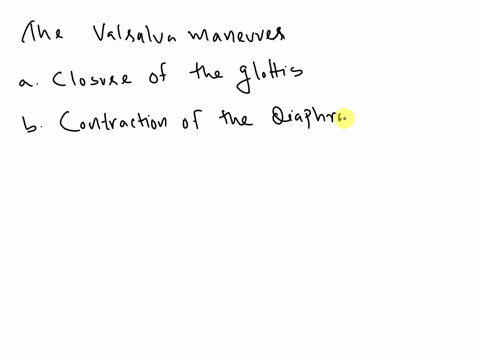 The Valsalva maneuves
a. Closure of the glottis
b. Contraction of the Diaphr